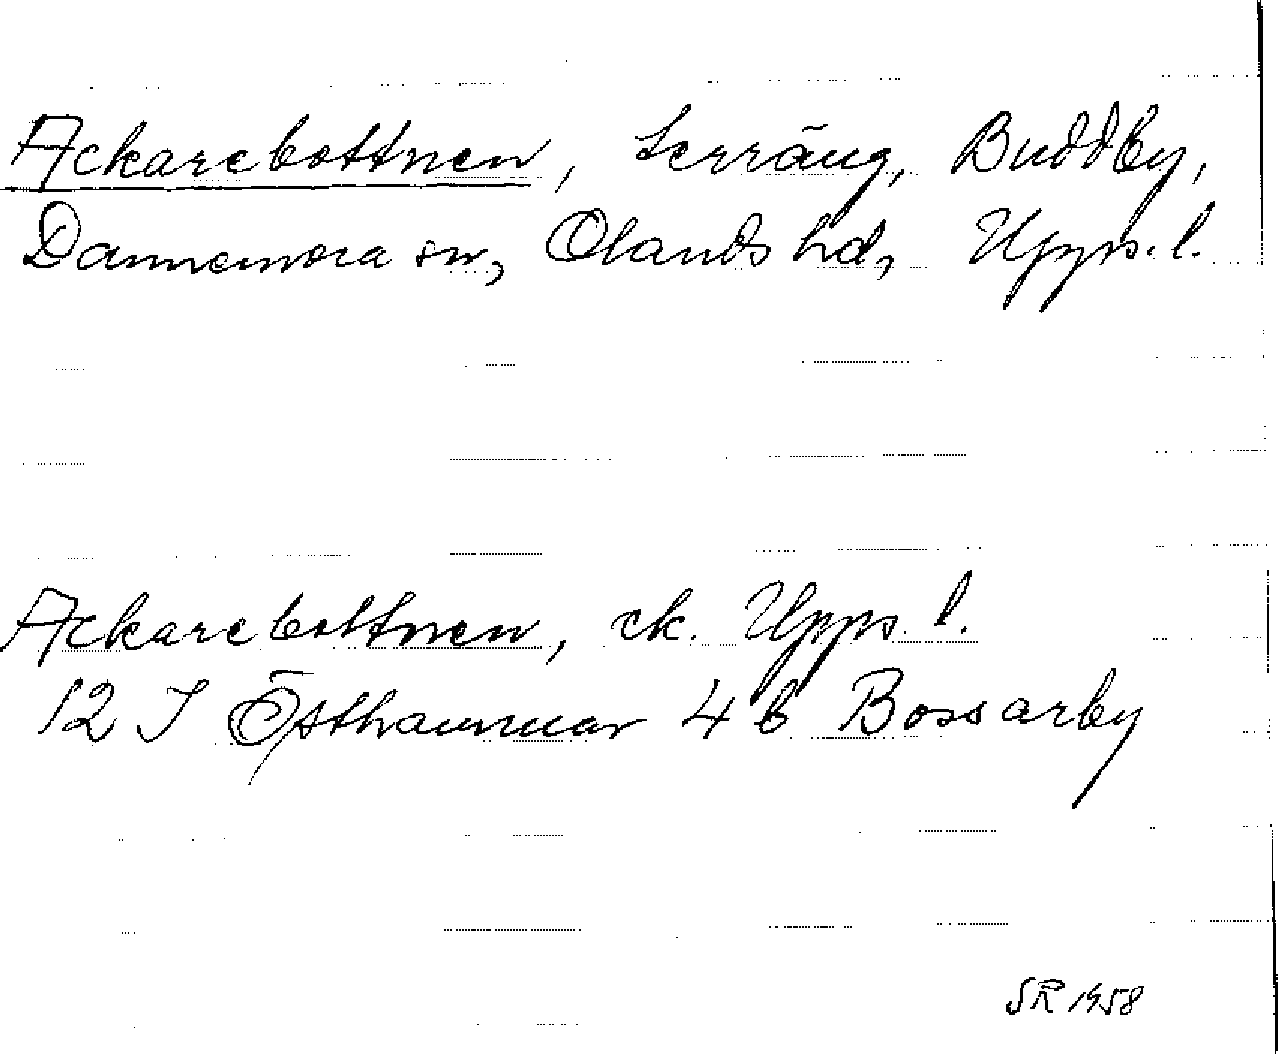 Ackarebottnen, terräng, Buddby,
Dannemora sn, Olands hd, Upps. l.
Ackarebottnen, ek. Upps. l.
12 I Östhammar 4 b Bossarby
SR 1958